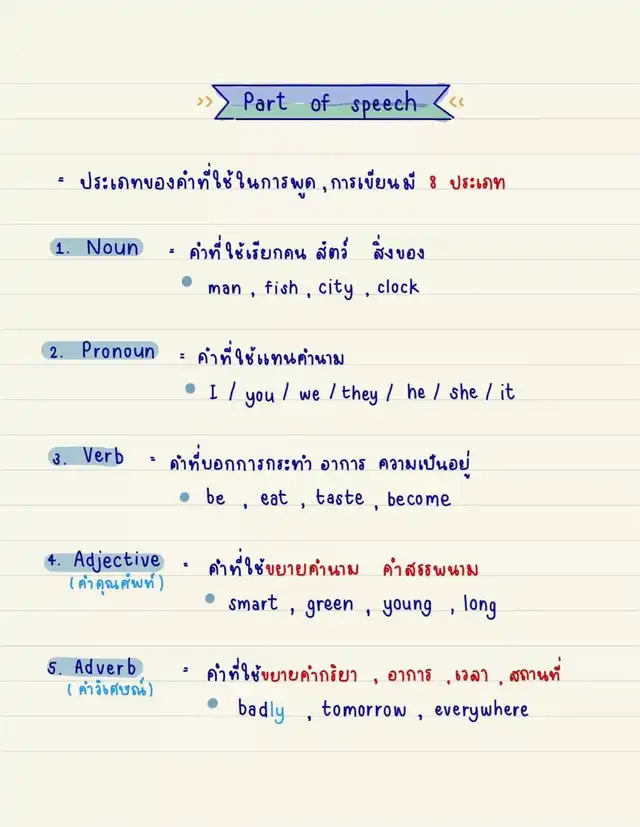 >> Part of speech <<
= ประเภทของคำที่ใช้ในการพูด , การเขียนมี 8 ประเภท
1. Noun = คำที่ใช้เรียกคน สัตว์ สิ่งของ
• man , fish , city , clock
2. Pronoun = คำที่ใช้แทนคำนาม
• I / you / we / they / he / she / it
3. Verb = คำที่บอกการกระทำ อาการ ความเป็นอยู่
• be , eat , taste , become
4. Adjective = คำที่ใช้ขยายคำนาม คำสรรพนาม
(คำคุณศัพท์)
• smart , green , young , long
5. Adverb = คำที่ใช้ขยายคำกริยา , อาการ , เวลา , สถานที่
(คำวิเศษณ์)
• badly , tomorrow , everywhere